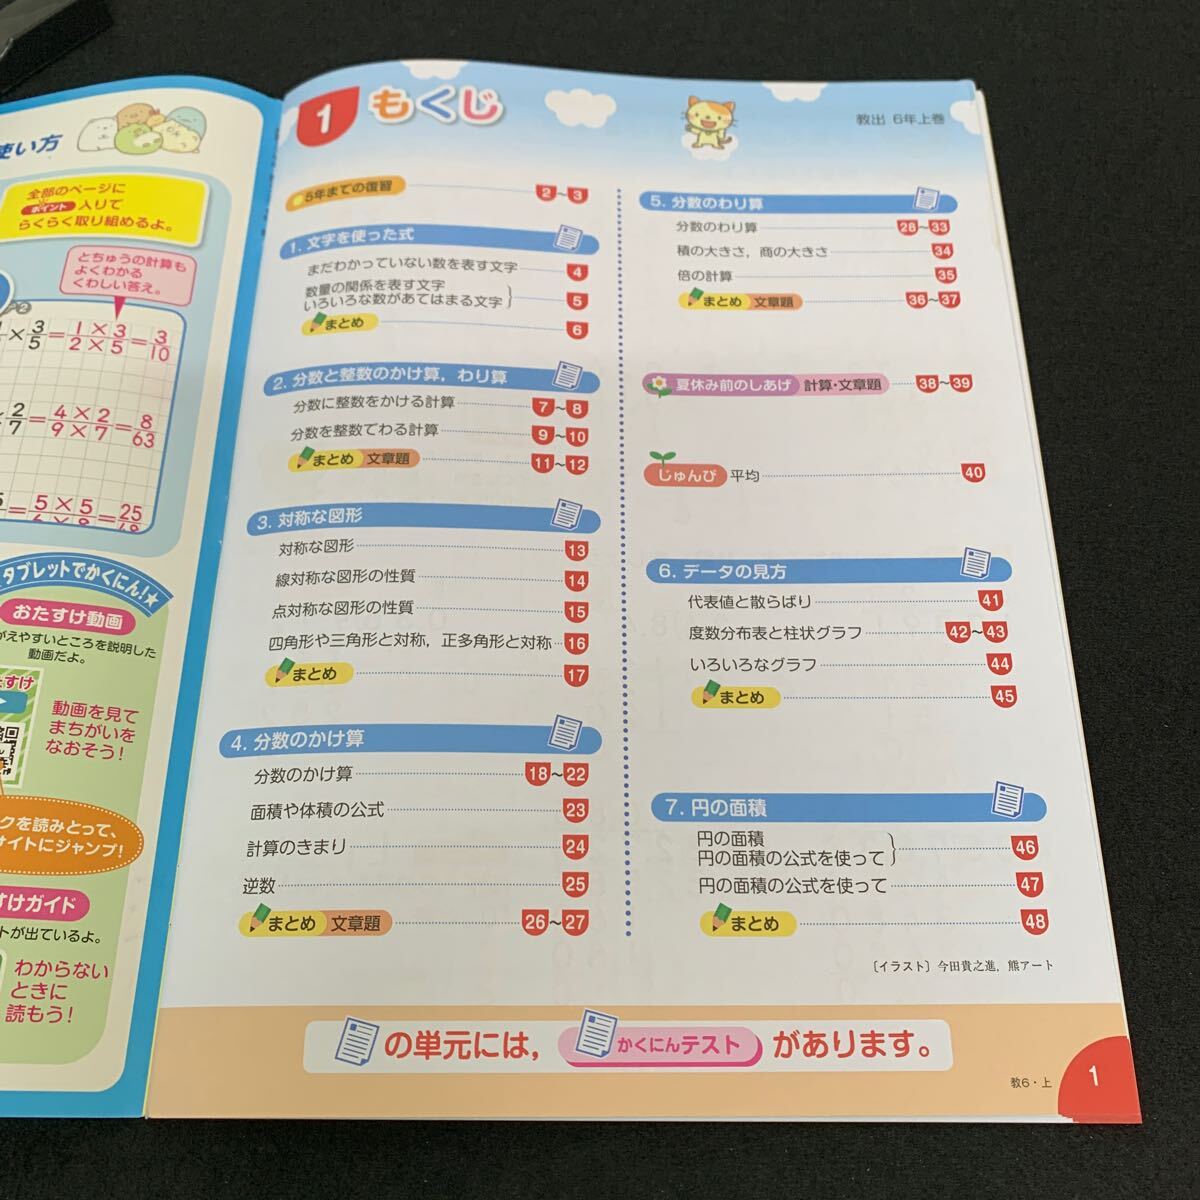 使い方
全部のページに
ポイント 入りで
らくらく取り組めるよ。
とちゅうの計算も
よくわかる
くわしい答え。
×3/5=1×3/2×5=3/10
2/7=4×2/9×7=8/63
=5×5/6×8=25/48
タブレットでかくにん!★
おたすけ動画
がえやすいところを説明した
動画だよ。
たすけ
動画を見て
まちがいを
なおそう!
クを読みとって、
サイトにジャンプ!
すけガイド
トが出ているよ。
わからない
ときに
読もう!
1 もくじ
教出 6年上巻
5年までの復習 2~3
1. 文字を使った式
まだわかっていない数を表す文字 4
数量の関係を表す文字
いろいろな数があてはまる文字 5
まとめ 6
2. 分数と整数のかけ算，わり算
分数に整数をかける計算 7~8
分数を整数でわる計算 9~10
まとめ 文章題 11~12
3. 対称な図形
対称な図形 13
線対称な図形の性質 14
点対称な図形の性質 15
四角形や三角形と対称，正多角形と対称 16
まとめ 17
4. 分数のかけ算
分数のかけ算 18~22
面積や体積の公式 23
計算のきまり 24
逆数 25
まとめ 文章題 26~27
5. 分数のわり算
分数のわり算 28~33
積の大きさ，商の大きさ 34
倍の計算 35
まとめ 文章題 36~37
夏休み前のしあげ 計算・文章題 38~39
じゅんび 平均 40
6. データの見方
代表値と散らばり 41
度数分布表と柱状グラフ 42~43
いろいろなグラフ 44
まとめ 45
7. 円の面積
円の面積
円の面積の公式を使って 46
円の面積の公式を使って 47
まとめ 48
〔イラスト〕今田貴之進，熊アート
の単元には，かくにんテスト があります。
教6・上
1